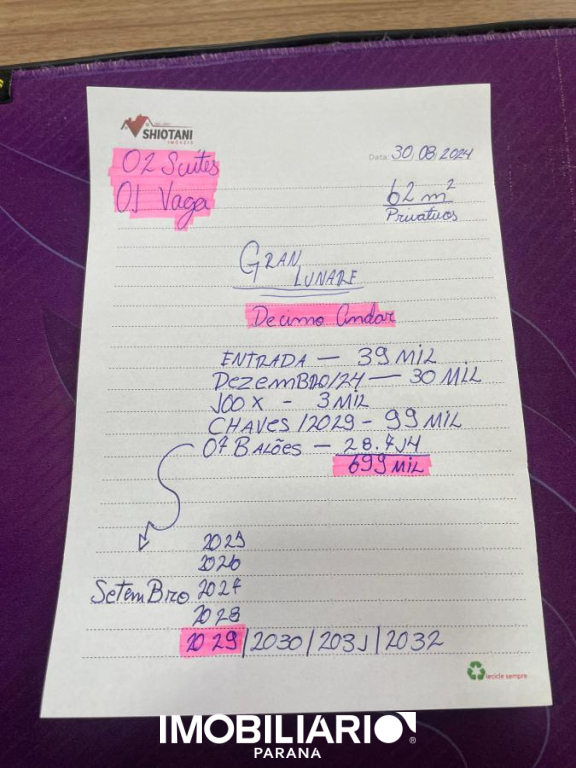 SHIOTANI
IMÓVEIS
Data: 30/08/2024
02 Suítes
01 Vaga
62 m²
Privativos
GRAN
LUNARE
Decimo Andar
ENTRADA — 39 MIL
DEZEMBRO/24 — 30 MIL
100 X - 3 MIL
CHAVES /2029 - 99 MIL
07 BALÕES — 28.714
699 MIL
2025
2026
SETEMBRO 2027
2028
2029 / 2030 / 2031 / 2032
recicle sempre
IMOBILIARIO®
PARANÁ